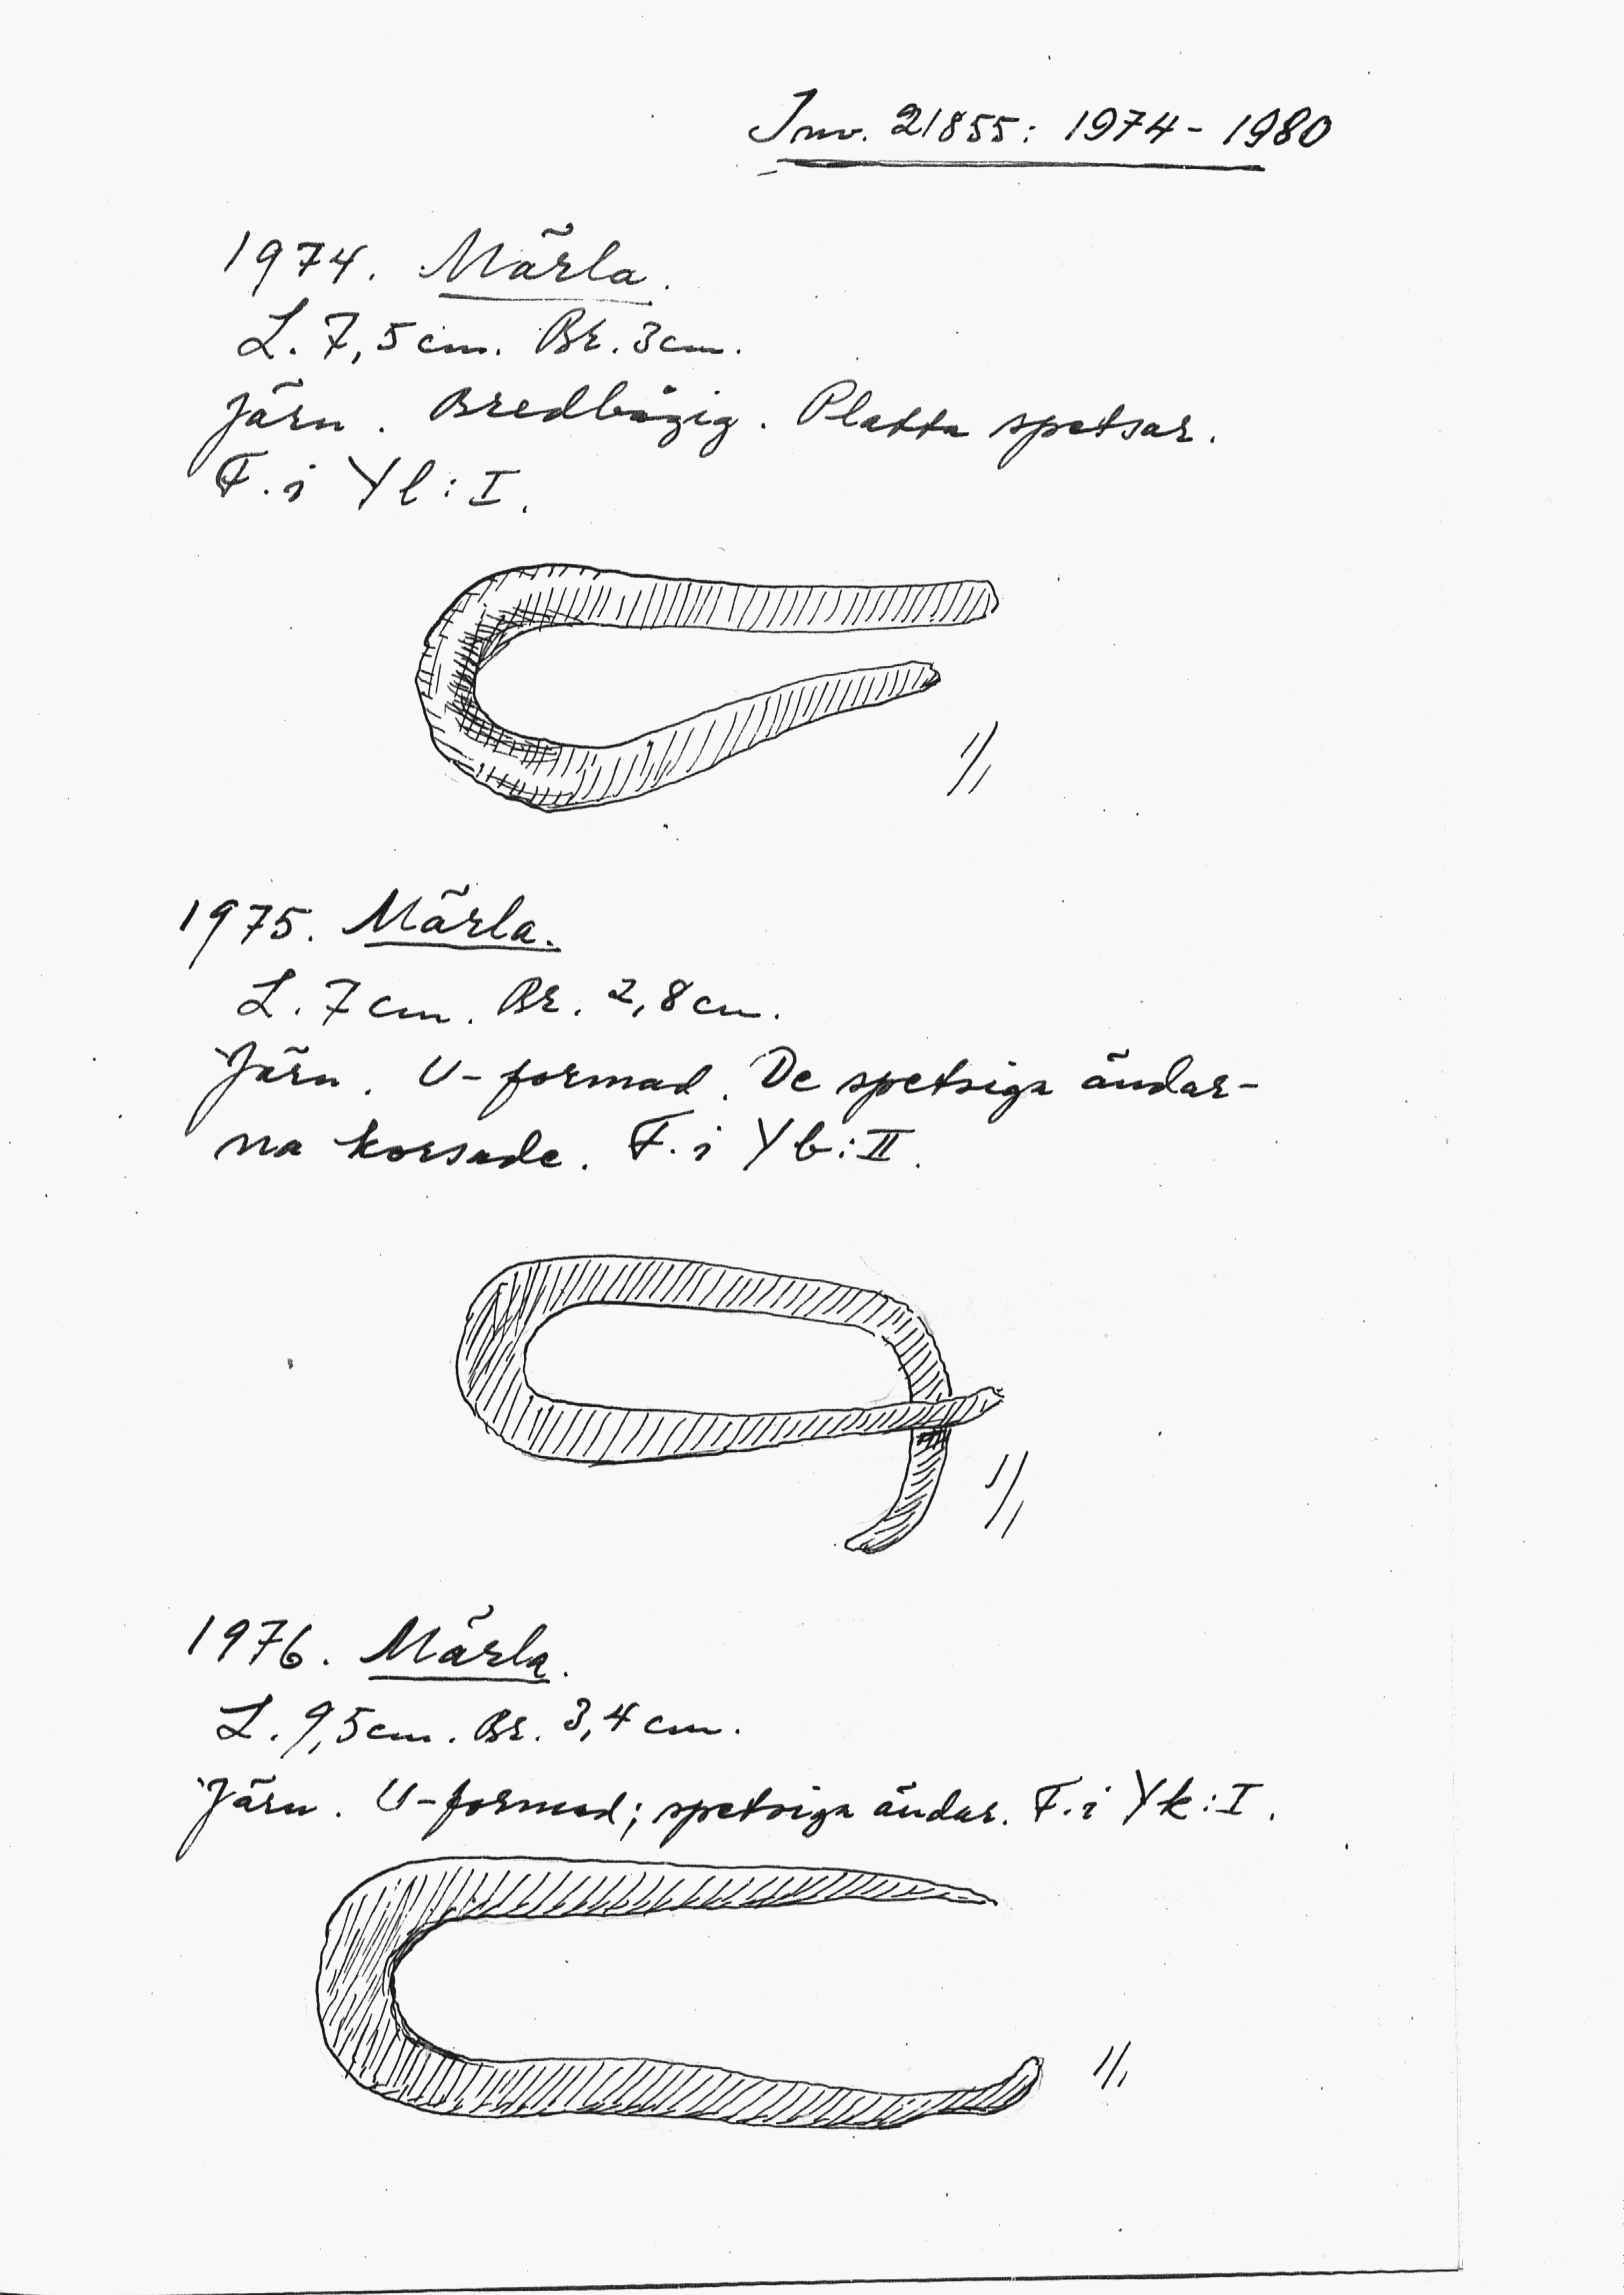 Inv. 21855: 1974-1980
1974. Märla.
L. 7,5 cm. Br. 3 cm.
Järn. Bredbågig. Platta spetsar.
F. i Yl: I.
1/1
1975. Märla.
L. 7 cm. Br. 2,8 cm.
Järn. U-formad. De spetsiga ändar-
na korsade. F. i Yb: II.
1/1
1976. Märla.
L. 9,5 cm. Br. 3,4 cm.
Järn. U-formad; spetsiga ändar. F. i Yk: I.
1/1